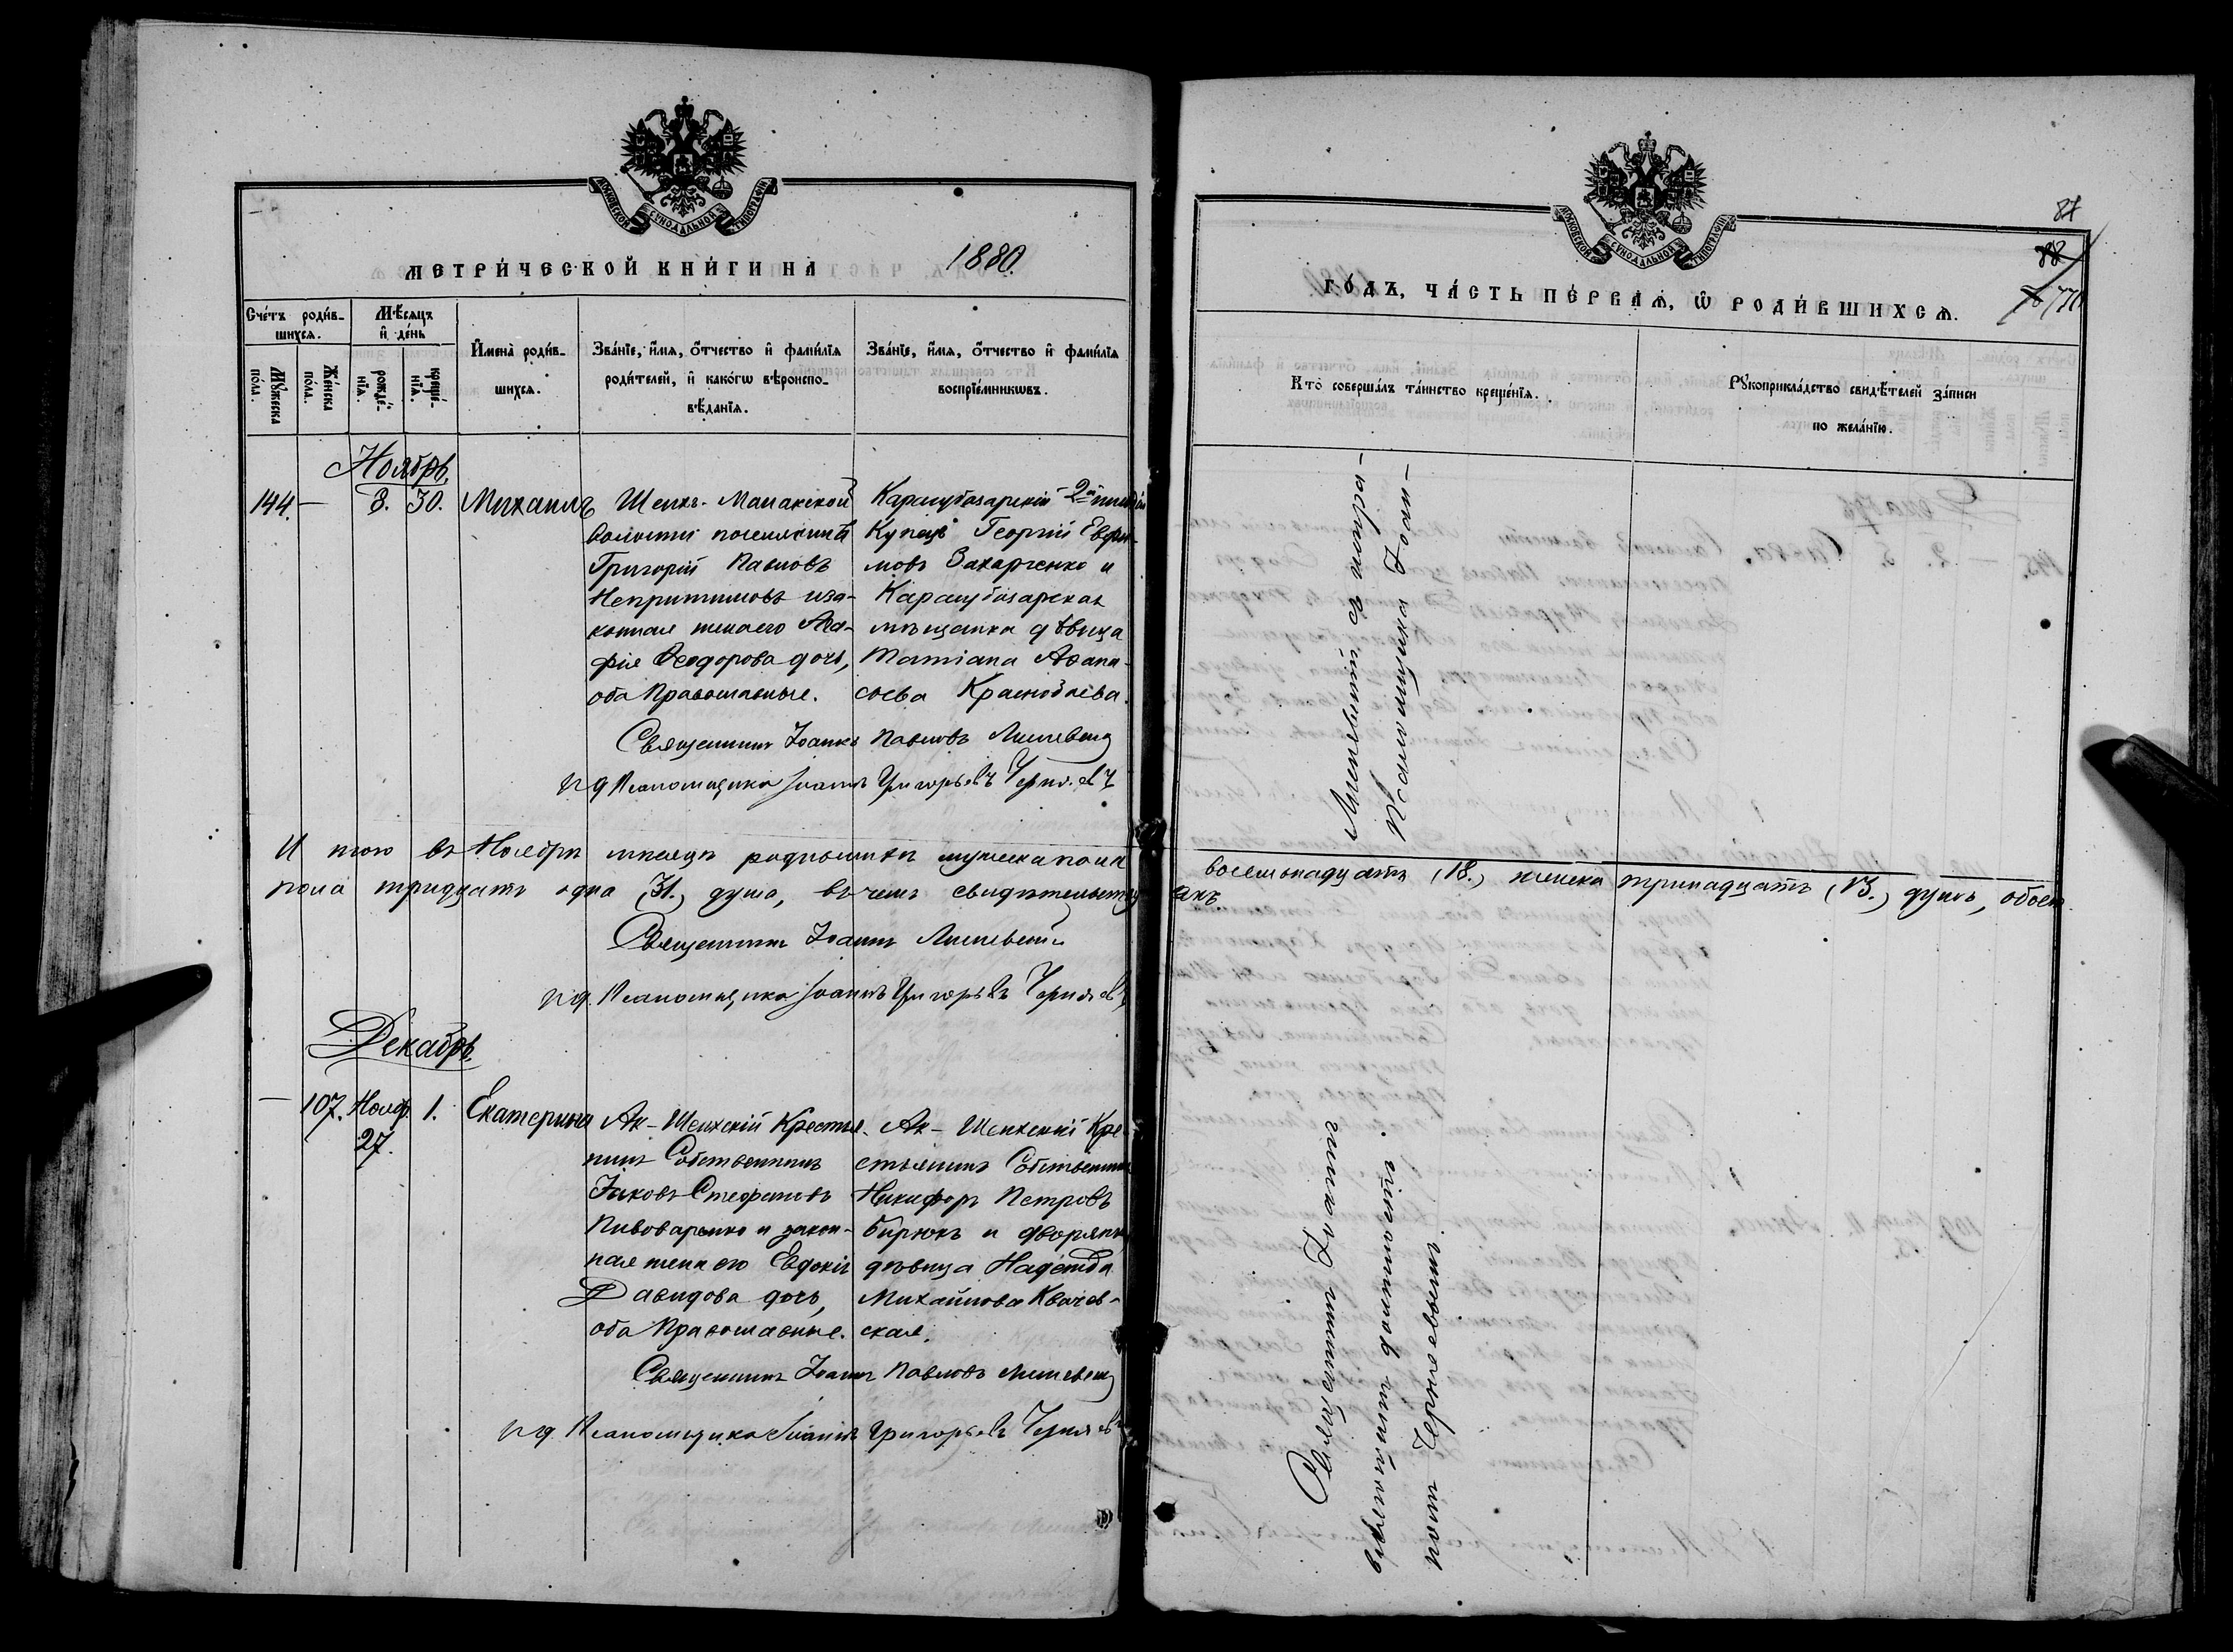 МОСКОВСКОЙ СѴНОДАЛЬНОЙ ТИПОГРАФІИ
МЕТРИ́ЧЕСКОЙ КНИ́ГИ НА 1880.
Сче́тъ роди́в-
шихся.
Мѣ́сяцъ
и҆ де́нь
Мꙋ́жеска
по́ла.
Же́нска
по́ла.
рожде́-
нїѧ.
креще́-
нїѧ.
И҆мена̀ роди́в-
шихся.
Зва́нїе, и҆́мѧ, ѻ҆́тчество и҆ фами́лїѧ
роди́телей, и҆ како́гѡ вѣроиспо-
вѣ́данїѧ.
Зва́нїе, и҆́мѧ, ѻ҆́тчество и҆ фами́лїѧ
воспрїе́мникѡвъ.
Ноябрь.
144. — 8. 30. Михаилъ
Шеихъ-Манакской
волости поселянинъ
Григорій Павловъ
Непритимовъ и за-
конная жена его Ага-
фія Ѳеодорова дочь,
оба Православные.
Карасубазарскій 2й гильдіи
Купецъ Георгій Евфи-
мовъ Захарченко и
Карасубазарская
мѣщанка дѣвица
Татіана Аѳана-
сьева Краснобаева.
Священникъ Іоаннъ Павловъ Лисневскій
И д Псаломщика Іоаннъ Григорьевъ Чернявъ
И того въ Ноябрѣ мѣсяцѣ родившихъ мужеска пола
пола тридцать одна (31.) душа, въ чемъ свидѣтельству
Священникъ Іоаннъ Лисневскій
и д. Псаломщика Іоаннъ Григорьевъ Чернявъ
Декабрь.
— 107. Нояб. 27. 1. Екатерина
Ак-Шеихскій Крестья-
нинъ Собственникъ
Іаковъ Стефановъ
Пивоваренко и закон-
ная жена его Евдокія
Давидова дочь,
оба Православные.
Ак-Шеихскій Кре-
стьянинъ Собственникъ
Никифоръ Петровъ
Бирюкъ и дворянка
дѣвица Надежда
Михайлова Квачев-
ская.
Священникъ Іоаннъ Павловъ Лисневскій
и д. Псаломщика Іоаннъ Григорьевъ Чернявъ
МОСКОВСКОЙ СѴНОДАЛЬНОЙ ТИПОГРАФІИ
87
88
ГО́ДЪ, ЧА́СТЬ ПЕ́РВАѦ, Ѡ҆ РОДИ́ВШИХСѦ.
Кто̀ соверша́лъ та́инство креще́нїѧ.
Рꙋкоприкла́дство свидѣ́телей за́писи
по жела́нїю.
восемьнадцать (18.) женска тринадцать (13.) душъ, обоего
Священникъ Іоаннъ Лисневскій, съ испра-
вляющимъ должность Псаломщика Іоан-
номъ Чернявымъ.